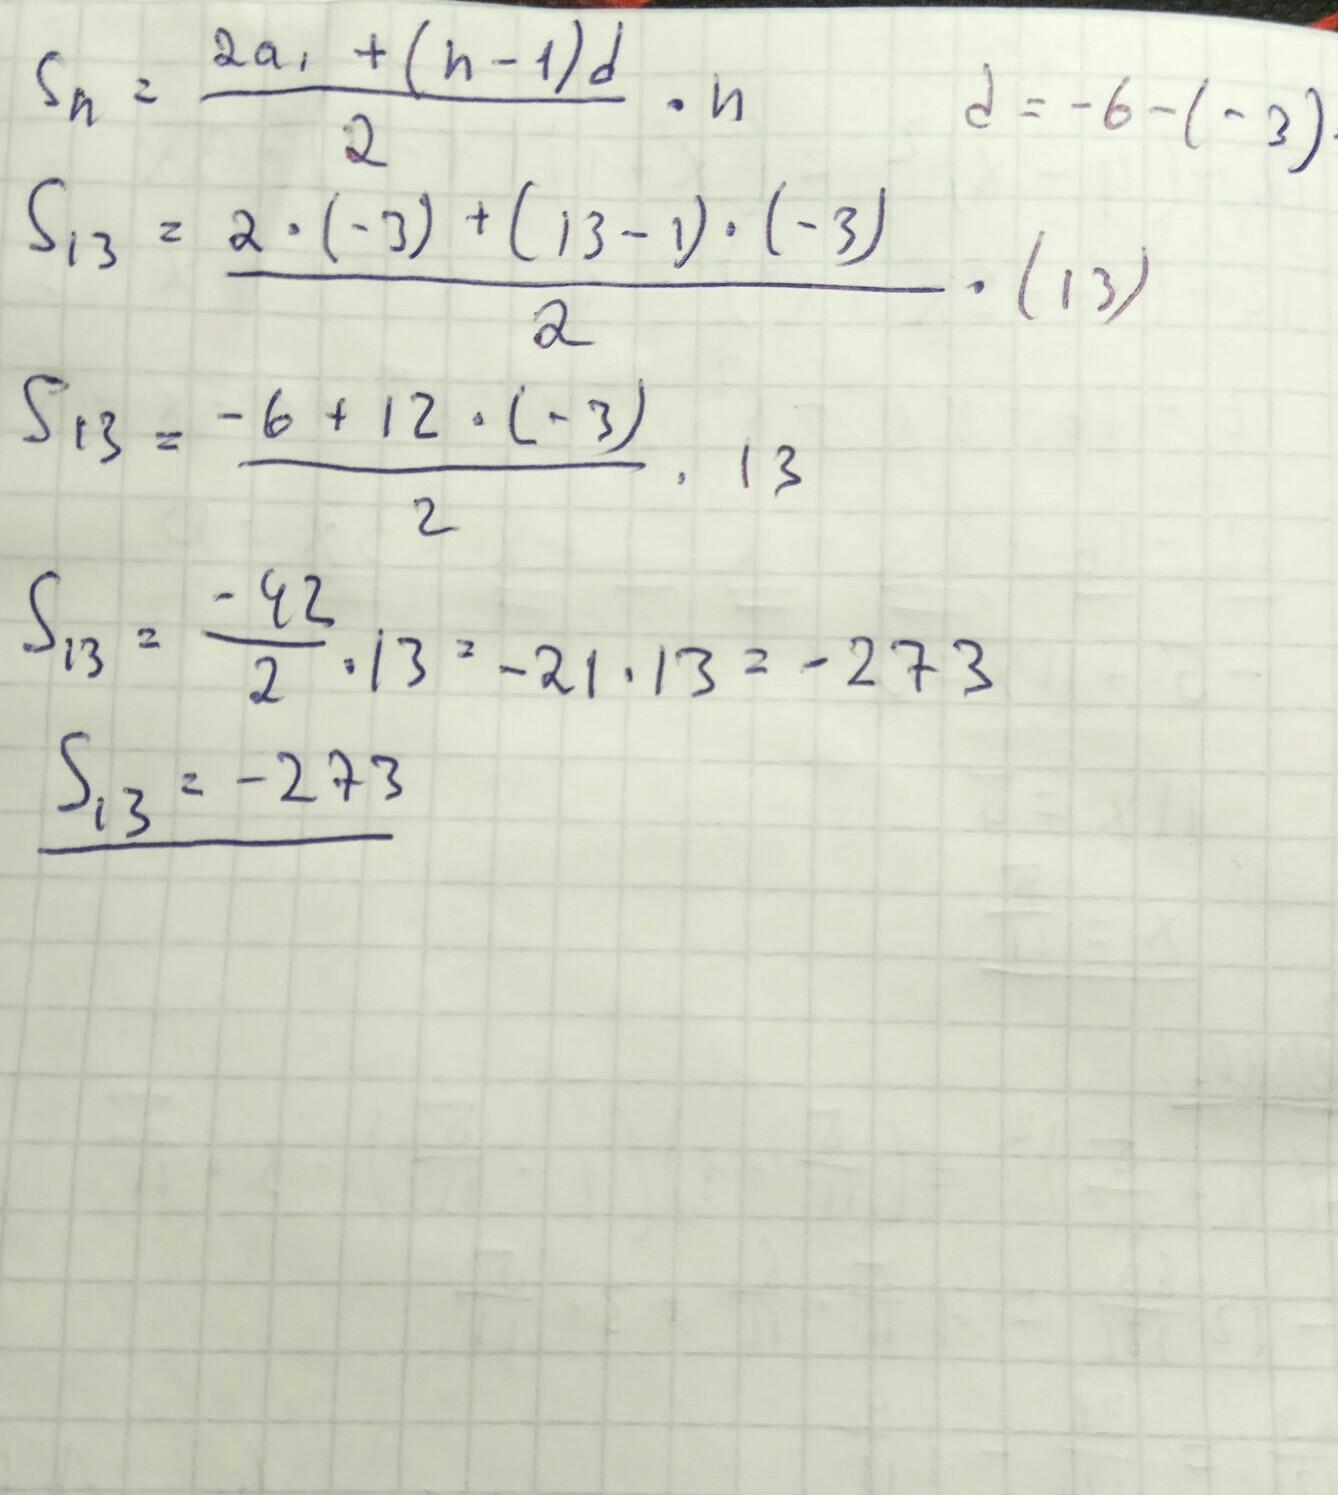 Sn = (2a₁ + (n-1)d)/2 · n d = -6-(-3)
S13 = (2·(-3)+(13-1)·(-3))/2 · (13)
S13 = (-6+12·(-3))/2 · 13
S13 = -42/2 · 13 = -21·13 = -273
S13 = -273